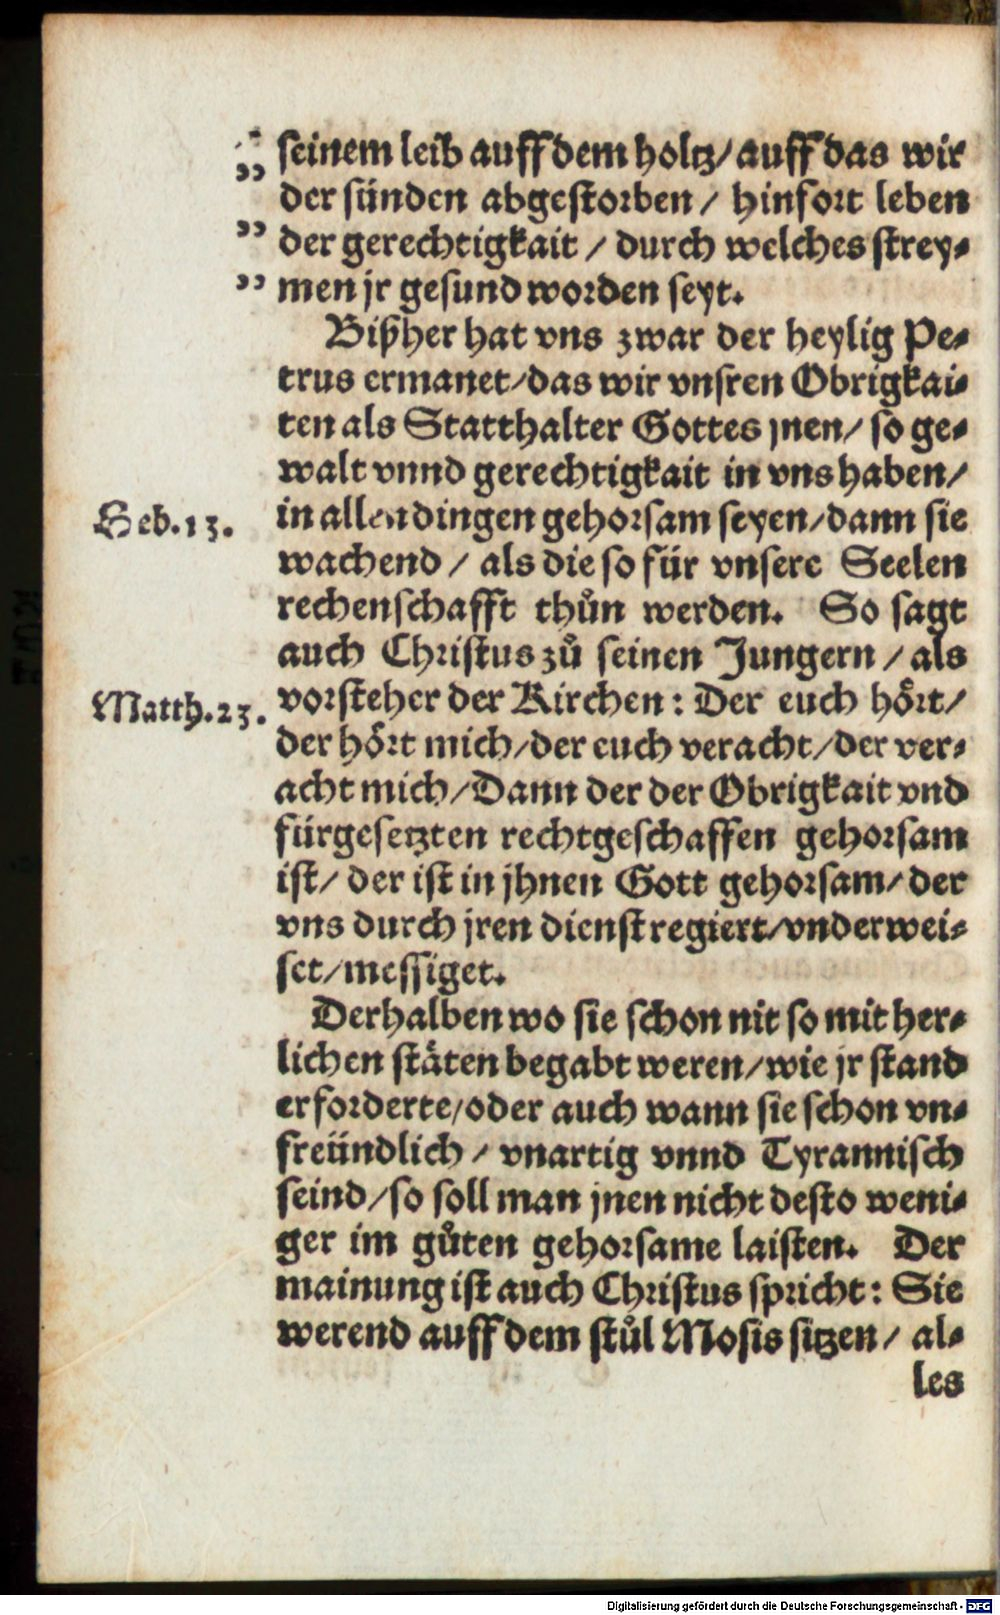 „ seinem leib auff dem holtz/ auff das wir
der sünden abgestorben / hinfort leben
„ der gerechtigkait / durch welches strey-
„ men jr gesund worden seyt.
Bißher hat vns zwar der heylig Pe-
trus ermanet/das wir vnsren Obrigkai-
ten als Statthalter Gottes jnen/ so ge-
walt vnnd gerechtigkait in vns haben/
Heb.13.
in allen dingen gehorsam seyen/dann sie
wachend / als die so für vnsere Seelen
rechenschafft thůn werden. So sagt
auch Christus zů seinen Jungern / als
Matth.23.
vorsteher der Kirchen: Der euch hört/
der hört mich/der euch veracht/der ver-
acht mich/Dann der der Obrigkait vnd
fürgesetzten rechtgeschaffen gehorsam
ist/ der ist in jhnen Gott gehorsam/ der
vns durch jren dienst regiert/vnderwei-
set/messiget.
Derhalben wo sie schon nit so mit her-
lichen stäten begabt weren/wie jr stand
erforderte/oder auch wann sie schon vn-
freündlich / vnartig vnnd Tyrannisch
seind/so soll man jnen nicht desto weni-
ger im gůten gehorsame laisten. Der
mainung ist auch Christus spricht: Sie
werend auff dem stůl Mosis sitzen/ al-
les
Digitalisierung gefördert durch die Deutsche Forschungsgemeinschaft - DFG